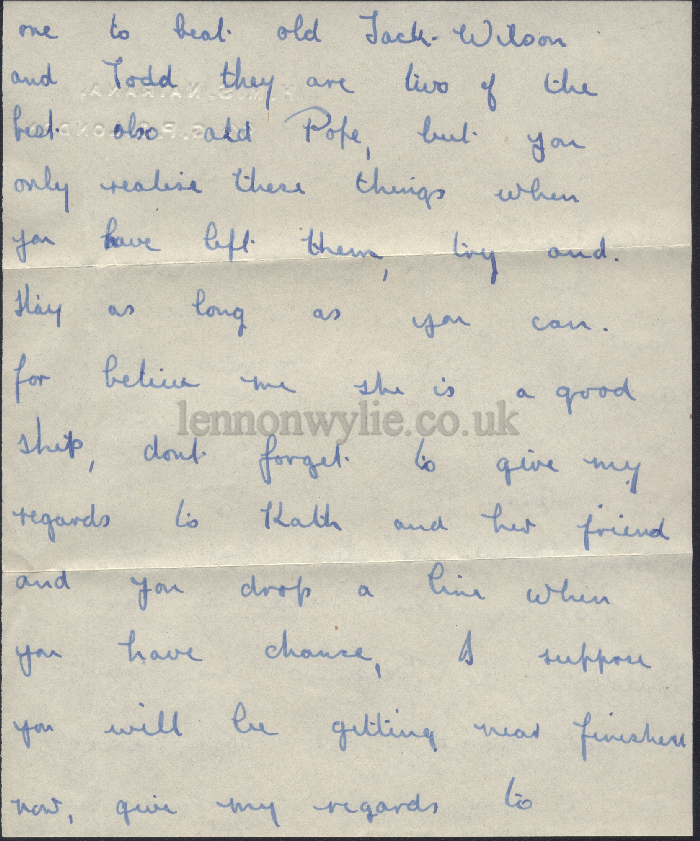 one to beat old Jack Wilson
and Todd they are two of the
best also old Pope, but you
only realise these things when
you have left them, try and.
stay as long as you can.
for believe me she is a good
lennonwylie.co.uk
ship, dont forget to give my
regards to Kath and her friend
and you drop a line when
you have chance, I suppose
you will be getting near finished
now, give my regards to